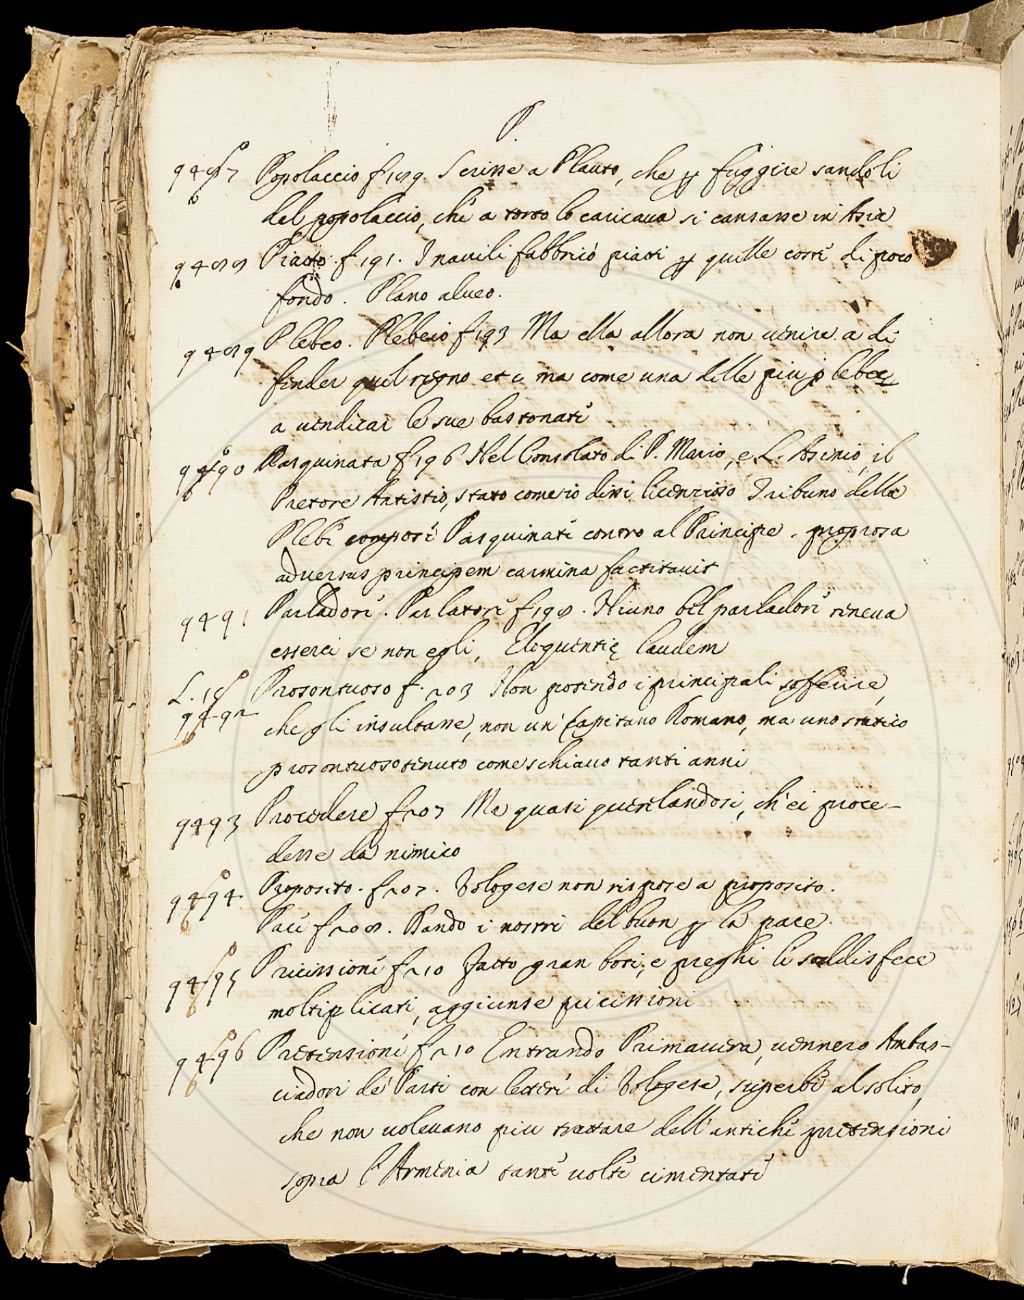 P
9487 Popolaccio f 189. Scrisse a Plauto, che p fuggire sandoli
del popolaccio, ch'e a torto lo caricava si cansasse in Asia
9488 Piatto. f 191. I navili fabbricò piatti p quelle coste di poco
fondo. Plano alveo.
9489 Plebeo. Plebeio f 193 Ma ella allora non venire a di
fender quel regno et c ma come una delle piu plebee
a vendicar le sue bastonate
9490 Pasquinata f 196 Nel Consolato di P. Mario, e L. Asinio, il
Pretore Antistio, stato come io dissi licenzioso Tribuno della
Plebe compose Pasquinate contro al Principe. probrosa
adversus principem carmina factitavit
9491 Parladore. Parlatore f 198. Niuno bel parladore teneva
esserci se non egli, Eloquentię laudem
L. 15
9492 Prosontuoso f. 203 Non potendo i principali sofferire,
che gli insultasse, non un Capitano Romano, ma uno statico
prosontuoso tenuto come schiavo tanti anni
9493 Procedere f 207 Ma quasi querelandosi, ch'ei proce-
desse da nimico
9494 Proposito. f 207. Vologese non rispose a proposito.
Pace f 208. Rando i nostri del buon p la pace.
9495 Precissione f 210 fatto gran boti, e preghi li soddisfece
moltiplicati, aggiunse precissioni
9496 Pretensione f 210 Entrando Primavera, vennero Ambas-
ciadori de' Parti con lettere di Vologese, superbe al solito,
che non volevano piu trattare dell'antiche pretensioni
sopra l'Armenia tante volte cimentate